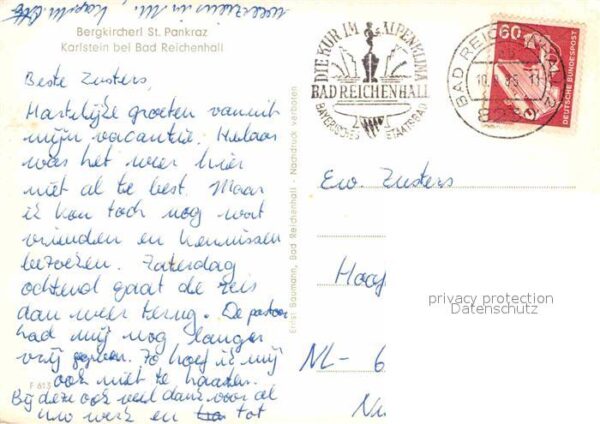 Bergkircherl St. Pankraz
Karlstein bei Bad Reichenhall
Beste Zusters,
Hartelijke groeten vanuit
mijn vacantie. Helaas
was het weer hier
niet al te best. Maar
ik kon toch nog wat
vrienden en kennissen
bezoeken. Zaterdag
ochtend gaat de reis
dan weer terug. De pastoor
had mij nog langer
vrij gegeven. Zo hoef ik mij
ook niet te haasten.
Bij deze ook veel dank voor al
uw werk en tot
F 613
Ernst Baumann, Bad Reichenhall - Nachdruck verboten
DIE KUR IM ALPENKLIMA
BAD REICHENHALL
BAYERISCHES STAATSBAD
BAD REICHENHALL
60
DEUTSCHE BUNDESPOST
Ew. Zusters
Hooj
privacy protection
Datenschutz
NL- 6